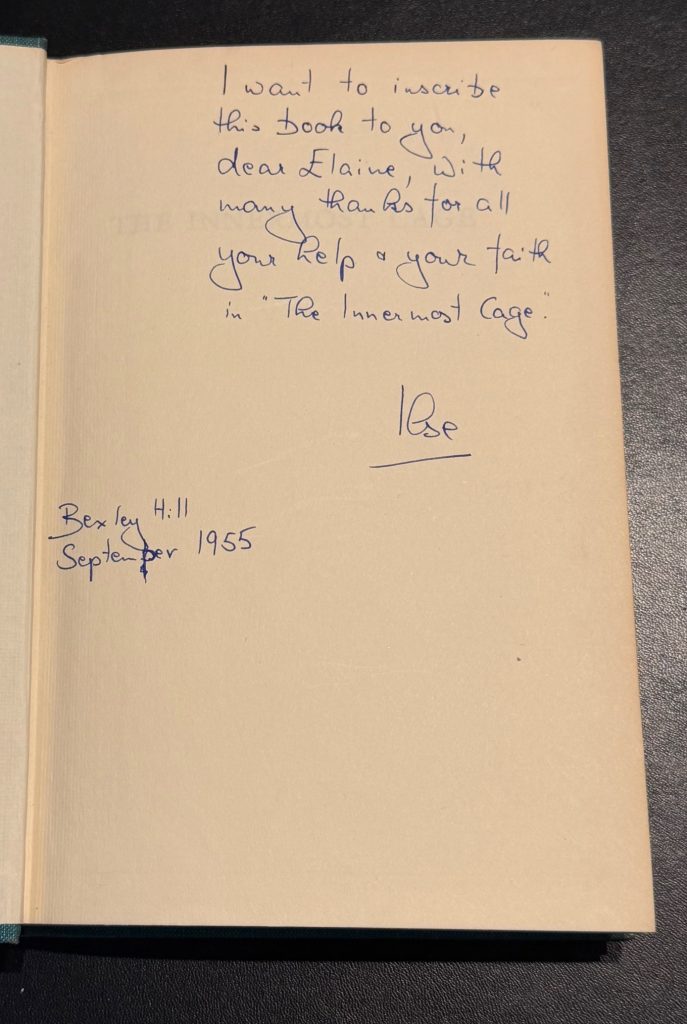 I want to inscribe
this book to you,
dear Elaine, with
many thanks for all
your help & your faith
in "The Innermost Cage".
Ilse
Bexley Hill
September 1955
THE INNERMOST CAGE